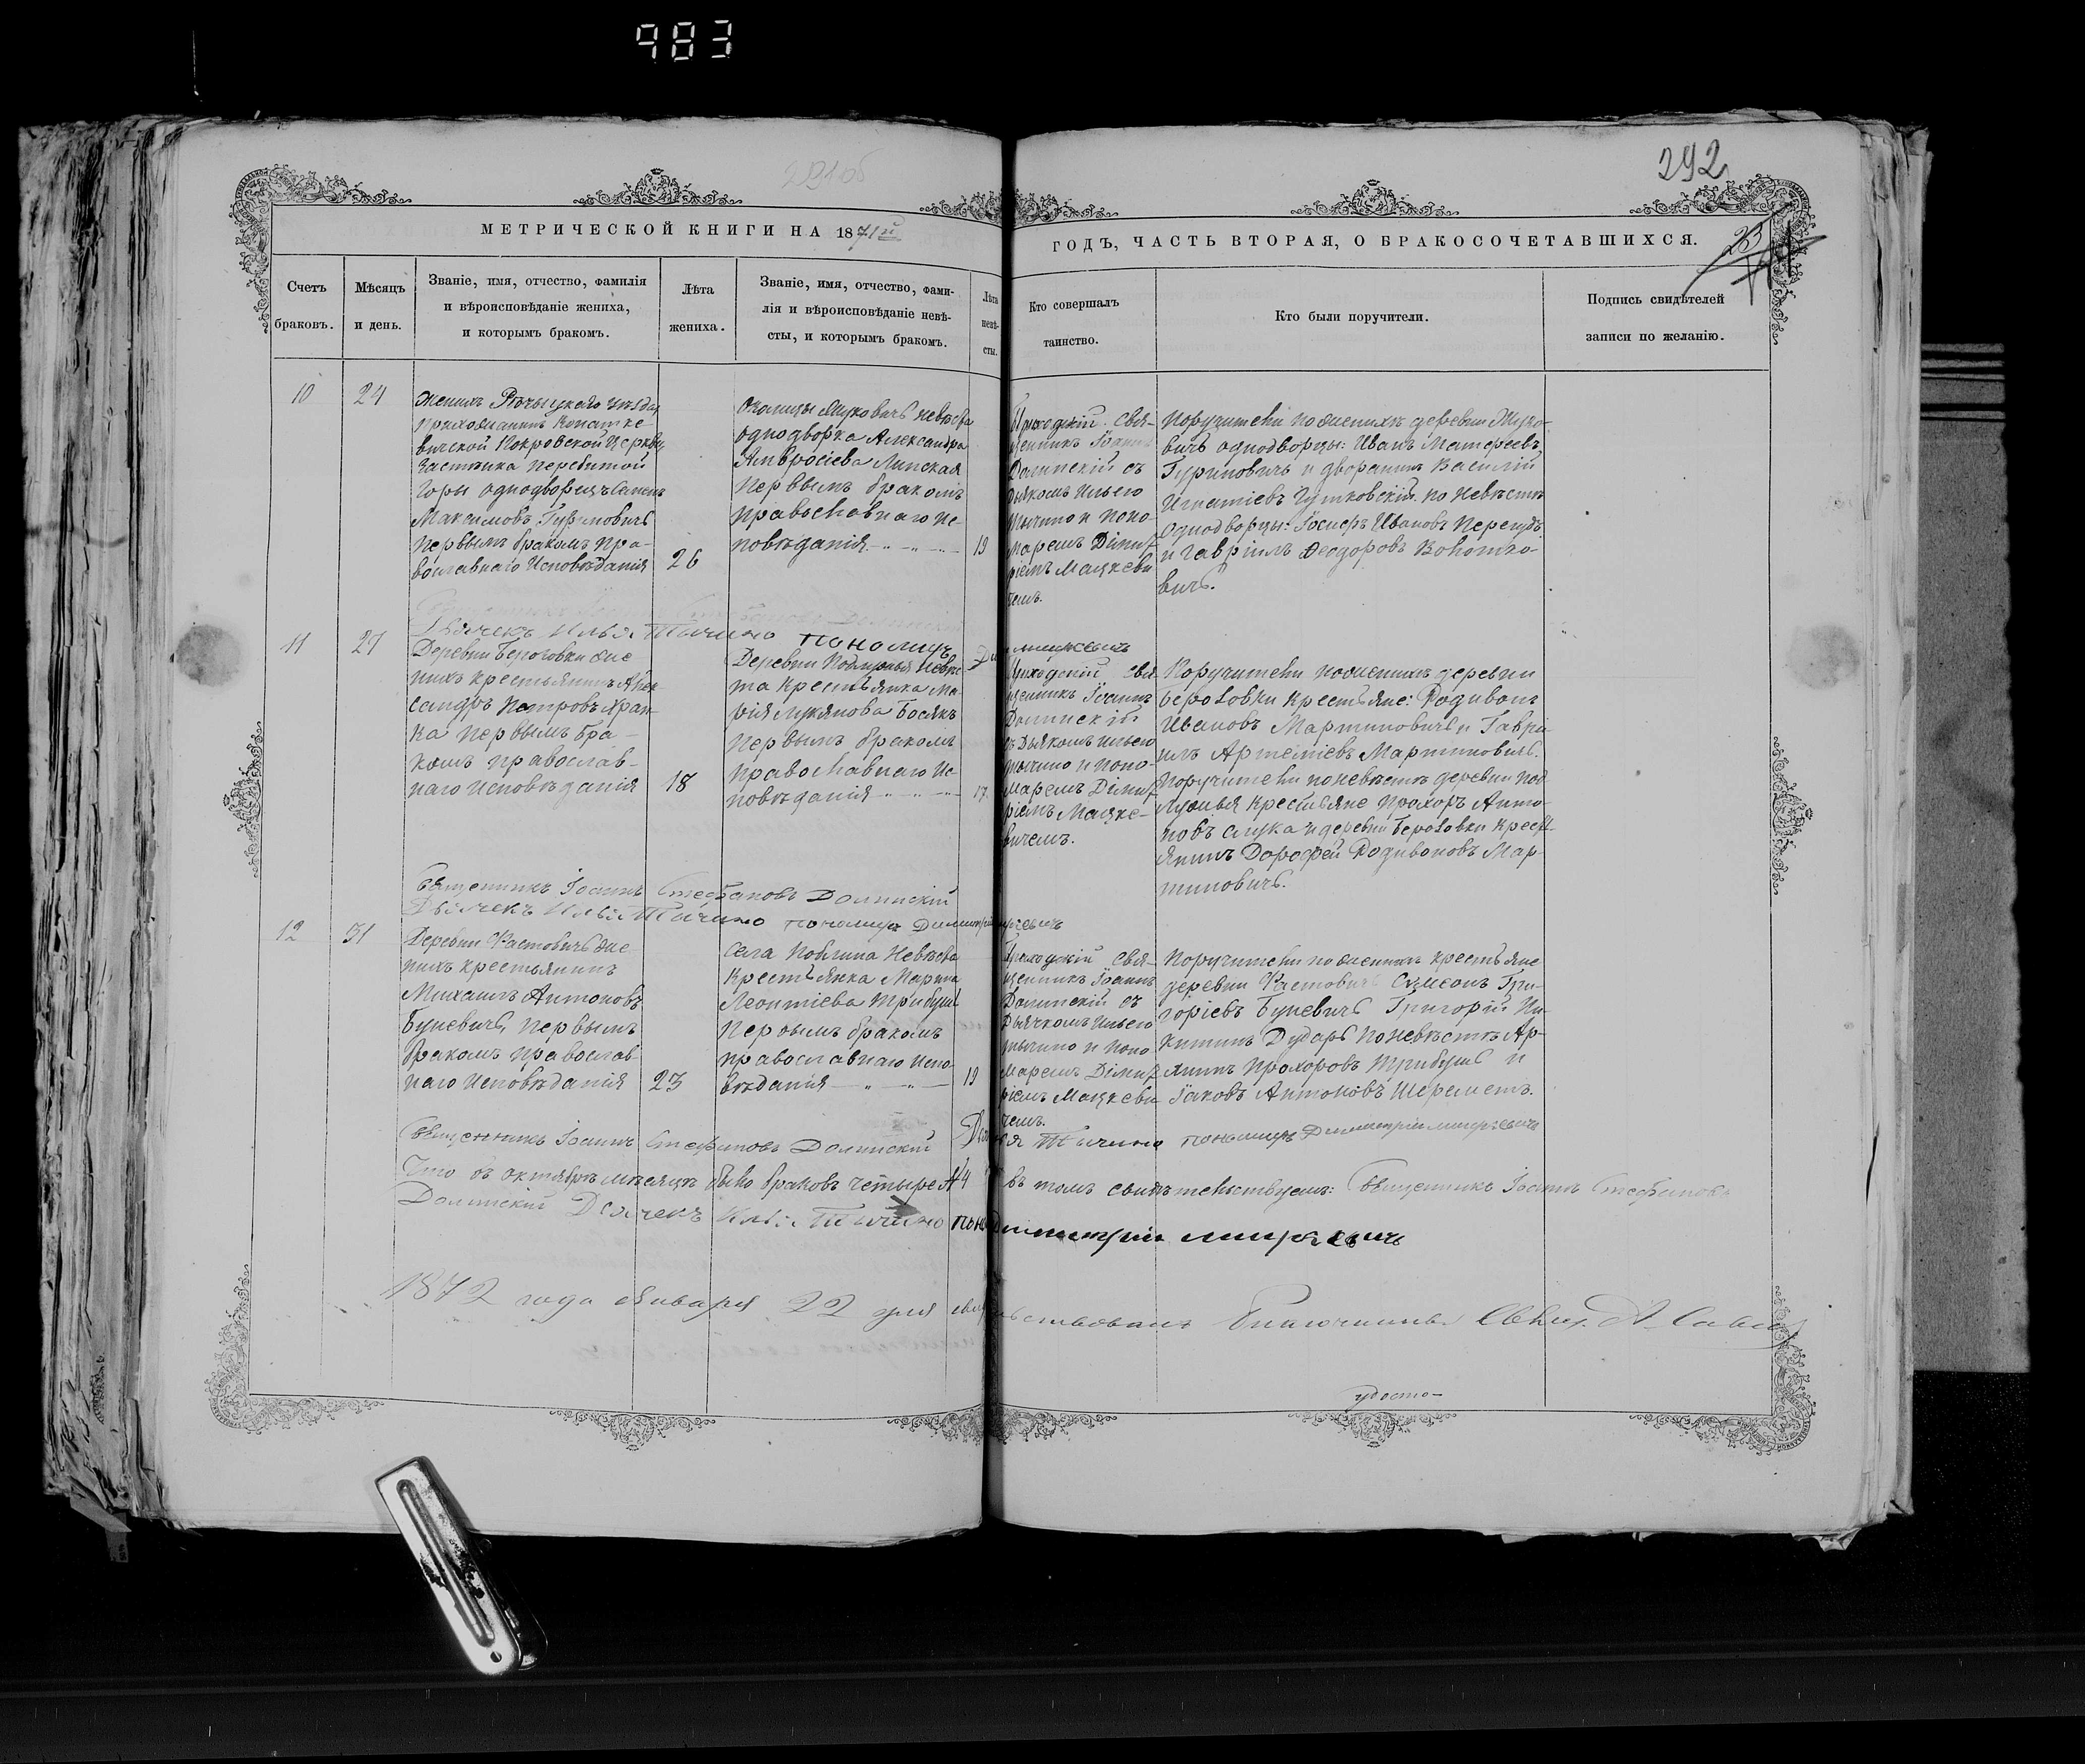 983
291об
292
МЕТРИЧЕСКОЙ КНИГИ НА 1871й
ГОДЪ, ЧАСТЬ ВТОРАЯ, О БРАКОСОЧЕТАВШИХСЯ.
23
Счетъ
браковъ.
Мѣсяцъ
и день.
Званіе, имя, отчество, фамилія
и вѣроисповѣданіе жениха,
и которымъ бракомъ.
Лѣта
жениха.
Званіе, имя, отчество, фами-
лія и вѣроисповѣданіе невѣ-
сты, и которымъ бракомъ.
Лѣта
невѣ-
сты.
Кто совершалъ
таинство.
Кто были поручители.
Подпись свидѣтелей
записи по желанію.
10
24
Женихъ Рѣчыцкаго уѣзда
прихожанинъ Копатке-
вичской Покровской Церкви
застѣнка Перебитой
Горы однодворецъ Семенъ
Максимовъ Гуриновичъ
первымъ бракомъ пра-
вославнаго Исповѣданія
26
Околицы Муковичъ невѣста
однодворка Александра
Амвросіева Липская
первымъ бракомъ
православнаго Ис-
повѣданія
19
Приходскій Свя-
щенникъ Іоаннъ
Долинскій съ
Дьякомъ Ильею
Тычино и Поно-
маремъ Димит
ріемъ Мацкеви
чемъ.
Поручители по женихѣ деревни Муко-
вичъ однодворцы: Иванъ Матфеевъ
Гуриновичъ и дворянинъ Василій
Игнатіевъ Гутковскій. по Невѣстѣ
Однодворцы: Іосифъ Ивановъ Перегудъ
и Гавріилъ Феодоровъ Волотко-
вичъ.
Дьячекъ Илья Тычино пономарь
11
27
Деревни Береговки же
нихъ крестьянинъ Алек-
сандръ Петровъ Хран-
ка первымъ бра-
комъ православ-
наго Исповѣданія
18
Деревни Подлужья невѣс
та крестьянка Ма-
рія Лукянова Босякъ
первымъ бракомъ
православнаго Ис-
повѣданія
17
Приходскій Свя
щенникъ Іоаннъ
Долинскій
съ Дьякомъ Ильею
Тычино и поно-
маремъ Димит
ріемъ Мацке-
вичемъ.
Поручители по женихѣ деревни
Береговки Крестьяне: Родивонъ
Ивановъ Мартиновичъ и Гаврі-
илъ Артеміевъ Мартиновичъ.
Поручители по невѣстѣ деревни Под
лужья Крестьяне Прохоръ Анто-
новъ Слука и деревни Береговки Крест-
янинъ Дорофей Родивоновъ Мар-
тиновичъ.
Священникъ Іоаннъ Стефановъ Долинскій
Дьячекъ Илья Тычино пономарь Димитрій
12
31
женихъ крестьянинъ
Михаилъ Антоновъ
Буневичъ, первымъ
бракомъ православ-
наго Исповѣданія
23
Села Поблина Невѣста
Крестьянка Марина
Леонтіева Трибушъ
первымъ бракомъ
православнаго Испо-
вѣданія
19
Приходскій Свя-
щенникъ Іоаннъ
Долинскій съ
Дьячкомъ Ильею
Тычино и поно
маремъ Димит
ріемъ Мацкеви
чемъ.
Поручители по женихѣ крестьяне
горіевъ Буневичъ Григорій Ни-
китинъ Дударь по невѣстѣ Ар-
янинъ Прохоровъ Трибушъ и
Іаковъ Антоновъ Шереметъ.
Священникъ Іоаннъ Стефановъ Долинскій Тычино пономарь Димитрій
Что въ октябрѣ мѣсяцѣ было браковъ четыре 4 въ томъ свидѣтельствуемъ: Священникъ Іоаннъ Стефановъ
Долинскій Дьячекъ Илья Тычино
1872 года Января 22 дня Благочинный Свящ.
удосто-